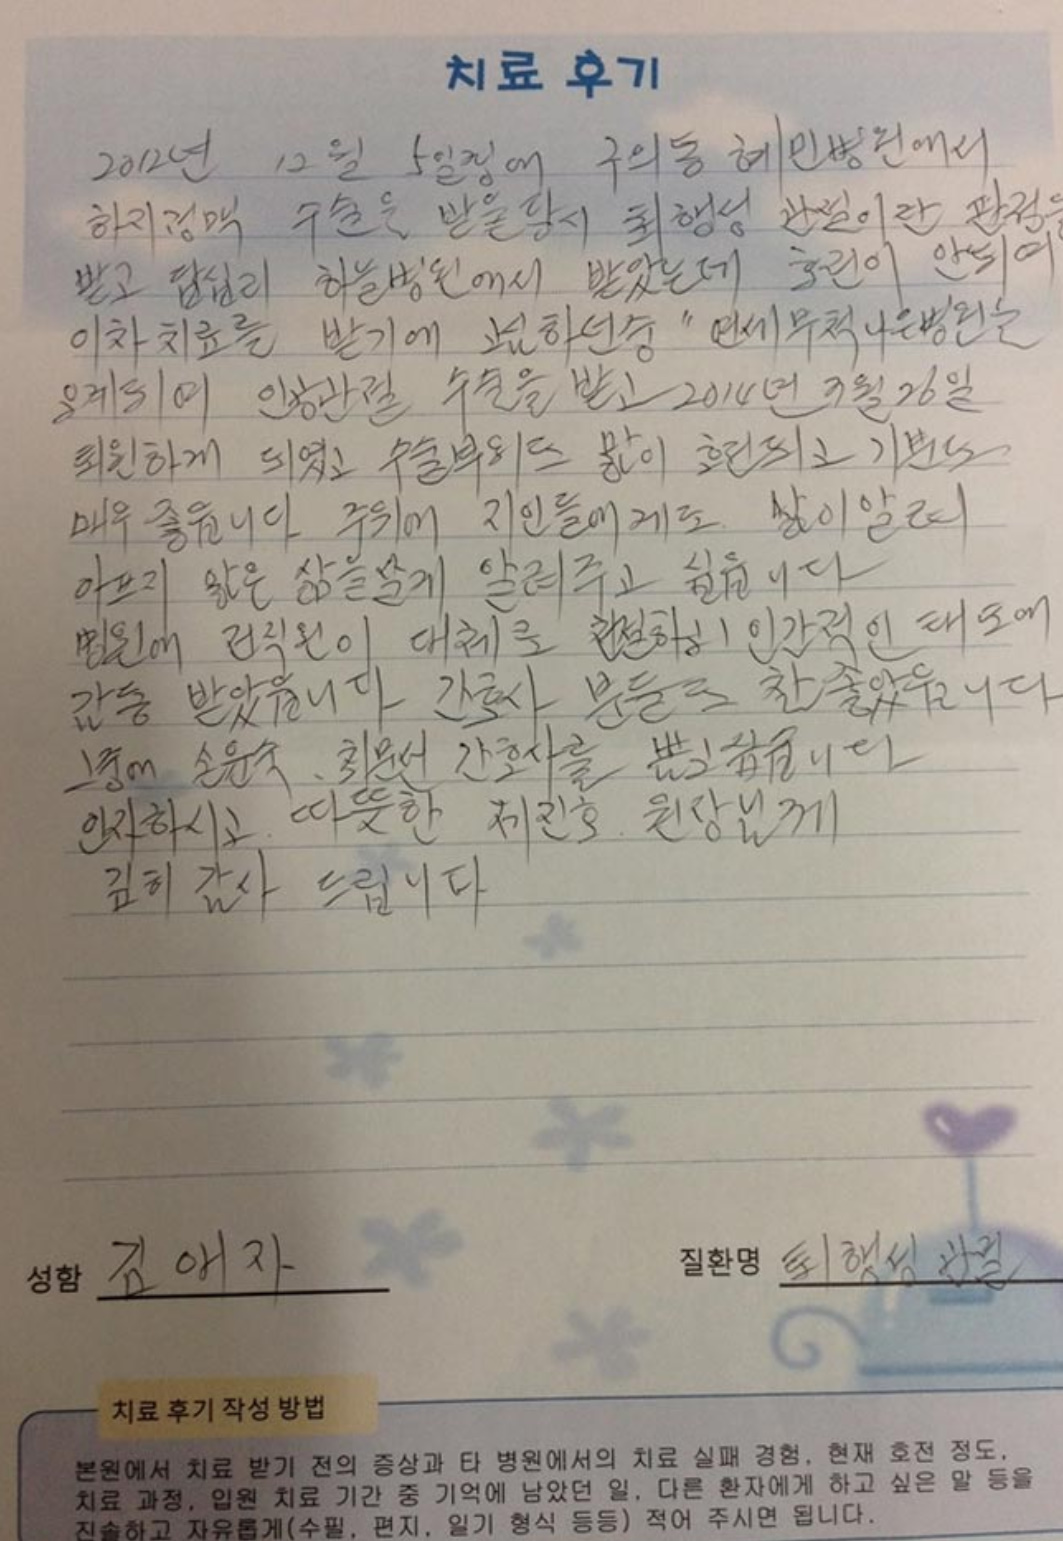 치료 후기
2012년 12월 5일경에 구의동 혜민병원에서
하지정맥 수술을 받을당시 퇴행성 관절이란 판정을
받고 답십리 하늘병원에서 받았는데 호전이 안되여
이차 치료를 받기에 고심하던중 "연세무척나은병원는
오게되며 인공관절 수술을 받고 2014년 3월 26일
퇴원하게 되였고 수술부위도 많이 호전되고 기분도
매우 좋읍니다 주위에 지인들에게도 많이알려
아프지 않은 삶을살게 알려주고 싶읍니다
병원에 전직원이 대체로 친절하니 인간적인 태도에
감동 받았읍니다 간호사 분들도 참 좋았읍니다
그중에 손윤숙、최문선 간호사를 뽑고싶읍니다
인자하시고. 따뜻한 제진호. 원장님게
깊히 감사 드립니다
성함 김애자
질환명 퇴행성 관절
치료 후기 작성 방법
본원에서 치료 받기 전의 증상과 타 병원에서의 치료 실패 경험, 현재 호전 정도,
치료 과정, 입원 치료 기간 중 기억에 남았던 일, 다른 환자에게 하고 싶은 말 등을
진솔하고 자유롭게(수필, 편지, 일기 형식 등등) 적어 주시면 됩니다.